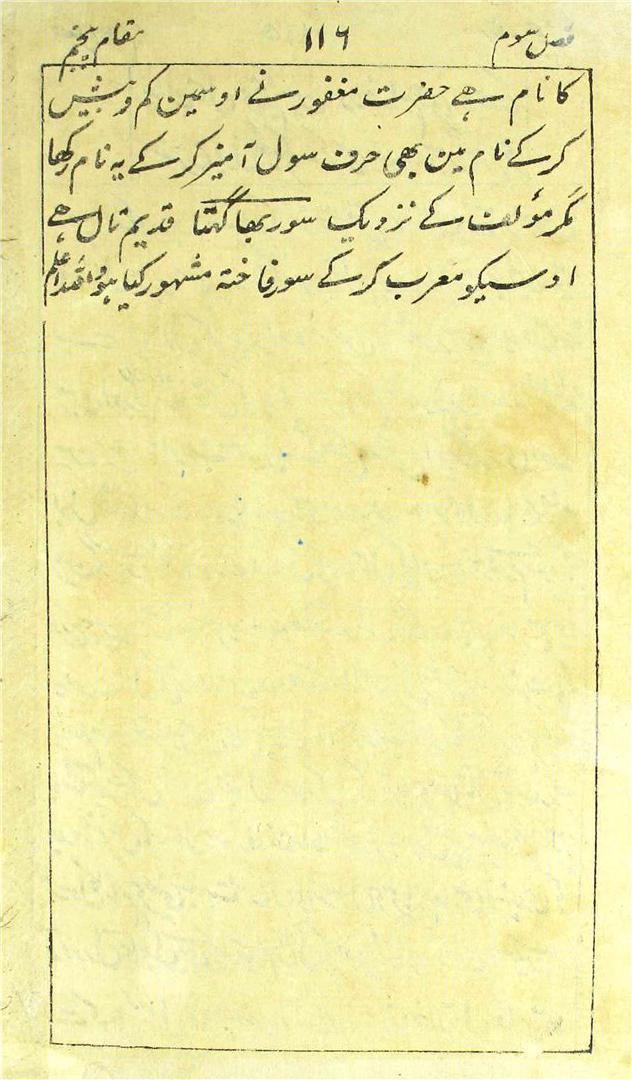 فصل سوم ۱۱۶ مقام پنجم
کا نام ہے حضرت مغفور نے اوسمین کم و بیش
کر کے نام مین بھی حرف سول آمیز کر کے یہ نام رکھا
مگر مؤلف کے نزدیک سور بھاگھتا قدیم تال ہے
اوسیکو معرب کر کے سور فاختہ مشہور کیا ہو واللہ اعلم